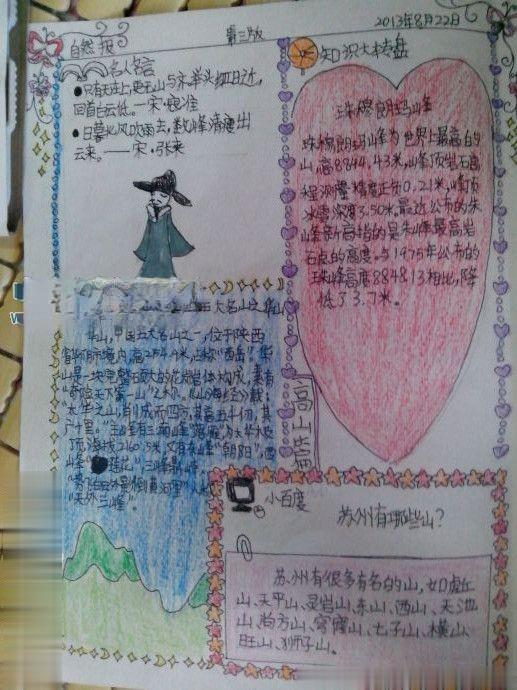 自然报
第三版
2013年8月22日
名人名言
●只有天在上,更无山与齐,举头红日近,
回首白云低。—宋·寇准
●日暮北风吹雨去,数峰清瘦出
云来。——宋·张耒
知识大转盘
珠穆朗玛峰
珠穆朗玛峰为世界上最高的
山,高8844.43米,峰顶岩石高
程测量精度正负0.21米,峰顶
冰雪深度3.50米。最近公布的珠
峰新高指的是珠峰最高岩
石点的高度。与1975年公布的
珠峰高度8848.13相比,降
低了3.7米。
大名山之华山
华山,中国五大名山之一,位于陕西
山是一块完整硕大的花岗岩体构成,素有
"奇险天下第一山"之称。《山海经》载:
"太华之山,削成而四方,其高五千仞,其
广十里。"
"天外三峰"
高山篇
小百度
苏州有哪些山?
苏州有很多有名的山,如虎丘
山、天平山、灵岩山、东山、西山、天池
山、尚方山、穹窿山、七子山、横山、
旺山、狮子山。